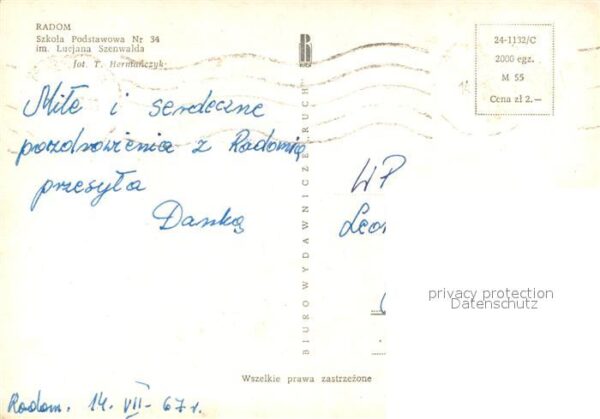 RADOM
Szkoła Podstawowa Nr 34
im. Lucjana Szenwalda
fot. T. Hermańczyk
24-1132/C
2000 egz.
M 55
Cena zł 2.—
Miłe i serdeczne
pozdrowienia z Radomia
przesyła
Danka
BIURO WYDAWNICZE RUCH
WP
Leon
privacy protection
Datenschutz
Wszelkie prawa zastrzeżone
Radom. 14. VII- 67 r.